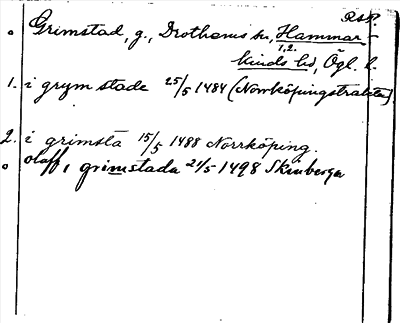 R:s P.
Grimstad, g., Drothems sn, Hammar-
1,2.
kinds hd, Ögl. l.
1. i grymstade 25/5 1484 (Norrköpingstrakten).
2. i grimsta 15/5 1488 Norrköping.
olaff i grimstada 21/5 1498 Skenberga